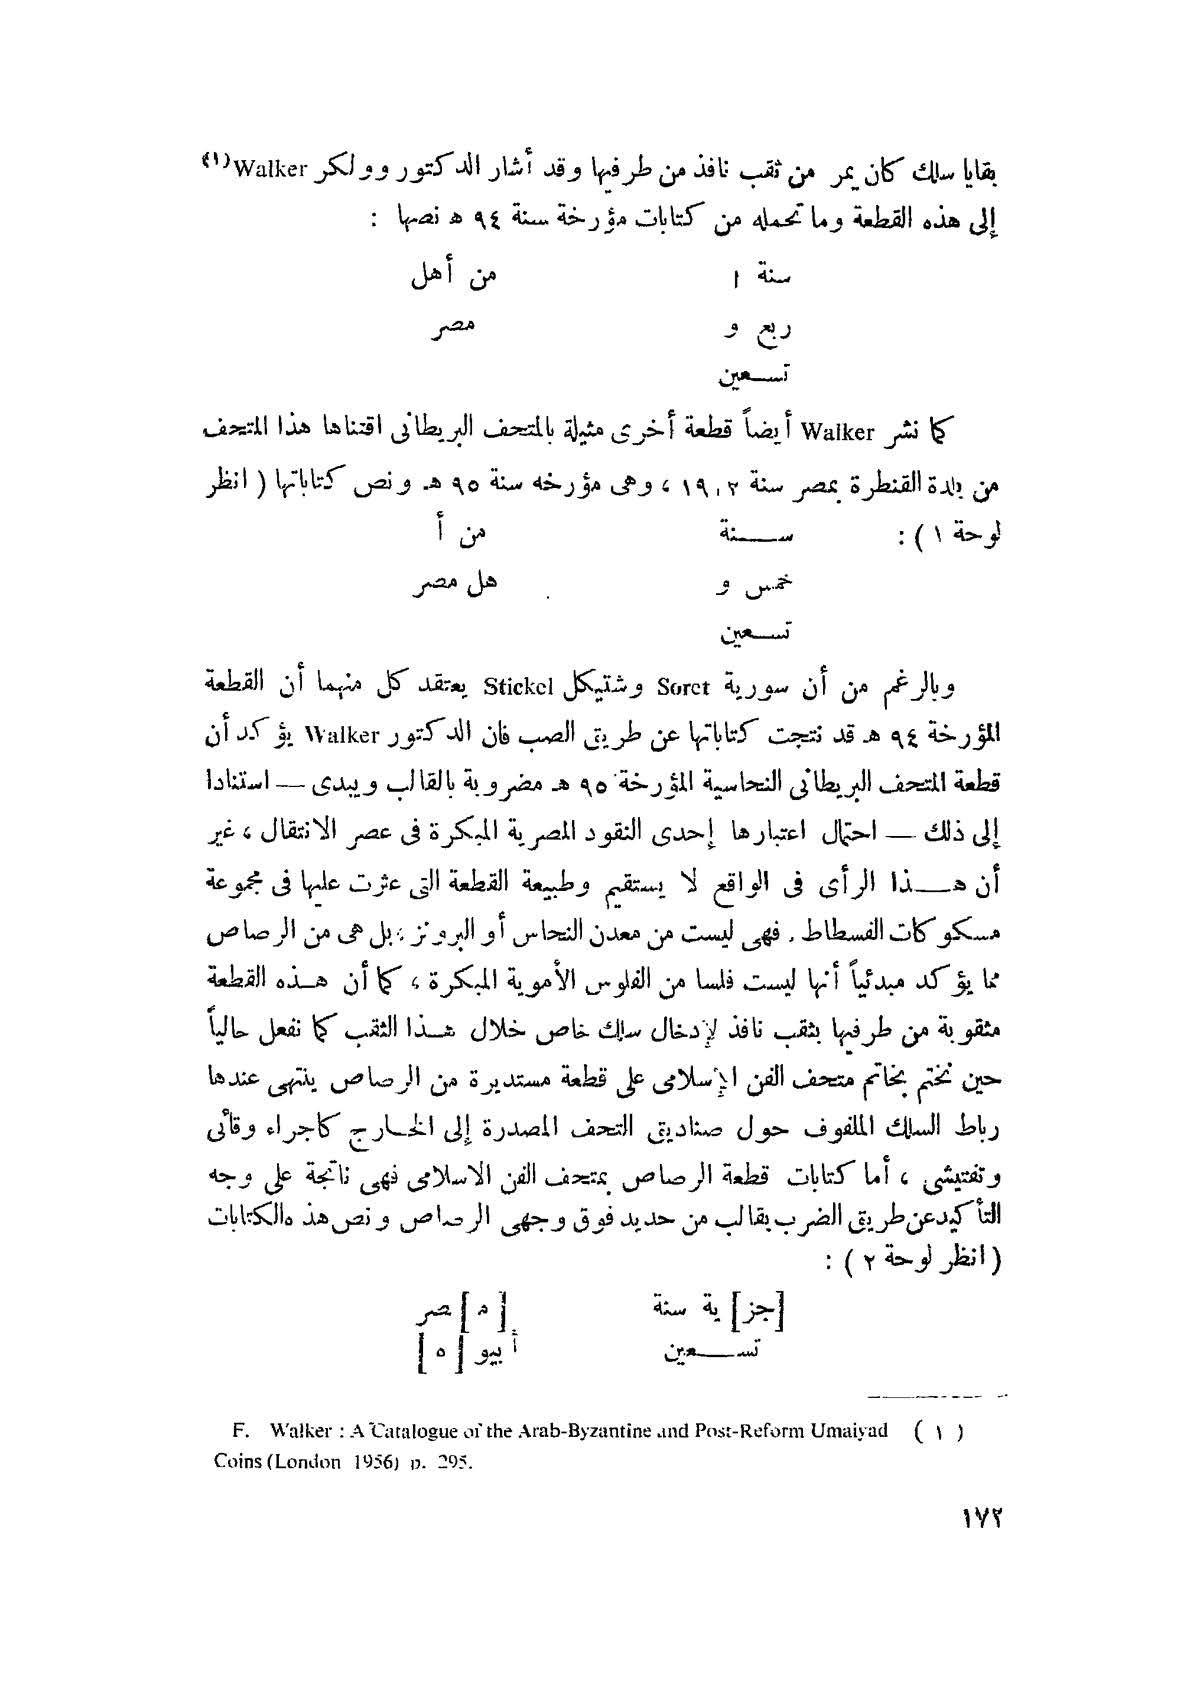 بقايا سلك كان يمر من ثقب نافذ من طرفيها وقد أشار الدكتور وولكر Walker (١)
إلى هذه القطعة وما تحمله من كتابات مؤرخة سنة ٩٤ هـ نصها :
سنة ا من أهل
ربع و مصر
تسـعين
كما نشر Walker أيضاً قطعة أخرى مثيلة بالمتحف البريطانى اقتناها هذا المتحف
من بلدة القنطرة بمصر سنة ١٩٠٢ ، وهى مؤرخه سنة ٩٥ هـ ونص كتاباتها ( انظر
لوحة ١ ) : ســـنة من أ
خمس و هل مصر
تسـعين
وبالرغم من أن سورية Soret وشتيكل Stickel يعتقد كل منهما أن القطعة
المؤرخة ٩٤ هـ قد نتجت كتاباتها عن طريق الصب فان الدكتور Walker يؤكد أن
قطعة المتحف البريطانى النحاسية المؤرخة ٩٥ هـ مضروبة بالقالب ويبدى — استنادا
إلى ذلك — احتمال اعتبارها إحدى النقود المصرية المبكرة فى عصر الانتقال ، غير
أن هـــذا الرأى فى الواقع لا يستقيم وطبيعة القطعة التى عثرت عليها فى مجموعة
مسكوكات الفسطاط . فهى ليست من معدن النحاس أو البرونز ، بل هى من الرصاص
مما يؤكد مبدئياً أنها ليست فلسا من الفلوس الأموية المبكرة ، كما أن هـذه القطعة
مثقوبة من طرفيها بثقب نافذ لإدخال سلك خاص خلال هـذا الثقب كما نفعل حالياً
حين نختم بخاتم متحف الفن الإسلامى على قطعة مستديرة من الرصاص ينتهى عندها
رباط السلك الملفوف حول صناديق التحف المصدرة إلى الخـارج كاجراء وقائى
وتفتيشى ، أما كتابات قطعة الرصاص بمتحف الفن الاسلامى فهى ناتجة على وجه
التأكيد عن طريق الضرب بقالب من حديد فوق وجهى الرصاص ونص هذه الكتابات
( انظر لوحة ٢ ) :
[جز] ية سنة [م] صر
تســـعين أبيو [ه]
F. Walker : A Catalogue of the Arab-Byzantine and Post-Reform Umaiyad ( ١ )
Coins (London 1956) p. 295.
١٧٢